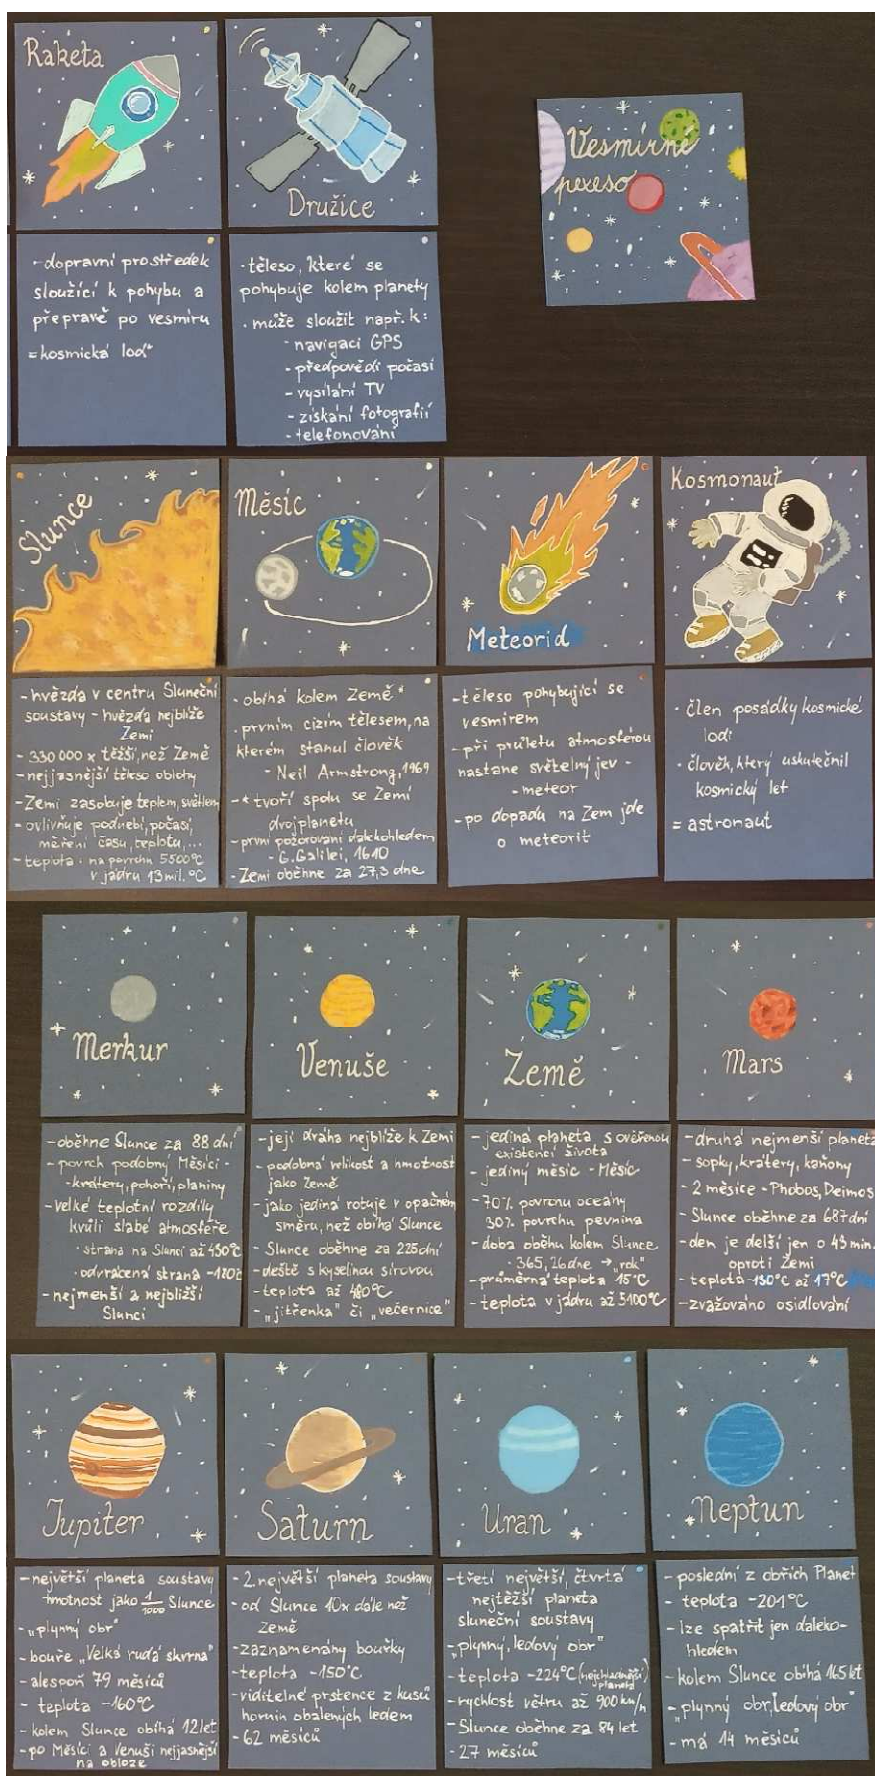 Raketa
Družice
Vesmírné
pexeso
- dopravní prostředek
sloužící k pohybu a
přepravě po vesmíru
= kosmická loď
- těleso, které se
pohybuje kolem planety
- může sloužit např. k:
- navigaci GPS
- předpovědi počasí
- vysílání TV
- získání fotografií
- telefonování
Slunce
Měsíc
Meteorid
Kosmonaut
- hvězda v centru Sluneční
soustavy - hvězda nejblíže
Zemi
- 330 000 x těžší, než Země
- nejjasnější těleso oblohy
- Zemi zásobuje teplem, světlem
- ovlivňuje podnebí, počasí,
měření času, teplotu,...
- teplota · na povrchu 5500°C
v jádru 13 mil. °C
- obíhá kolem Země *
- prvním cizím tělesem, na
kterém stanul člověk
- Neil Armstrong, 1969
- * tvoří spolu se Zemí
dvojplanetu
- první pozorování dalekohledem
- G. Galilei, 1610
- Zemi oběhne za 27,3 dne
- těleso pohybující se
vesmírem
- při průletu atmosférou
nastane světelný jev -
- meteor
- po dopadu na Zem jde
o meteorit
- člen posádky kosmické
lodi
- člověk, který uskutečnil
kosmický let
= astronaut
Merkur
Venuše
Země
Mars
- oběhne Slunce za 88 dní
- povrch podobný Měsíci -
- krátery, pohoří, planiny
- velké teplotní rozdíly
kvůli slabé atmosféře
· strana na Slunci až 430°C
· odvrácená strana -180°C
- nejmenší a nejbližší
Slunci
- její dráha nejblíže k Zemi
- podobná velikost a hmotnost
jako Země
- jako jediná rotuje v opačném
směru, než obíhá Slunce
- Slunce oběhne za 225 dní
- deště s kyselinou sírovou
- teplota až 480°C
- „jitřenka" či „večernice"
- jediná planeta s ověřenou
existencí života
- jediný měsíc - Měsíc
- 70% povrchu oceány
30% povrchu pevnina
- doba oběhu kolem Slunce
· 365,26 dne → „rok"
- průměrná teplota 15°C
- teplota v jádru až 5100°C
- druhá nejmenší planeta
- sopky, krátery, kaňony
- 2 měsíce - Phobos, Deimos
- Slunce oběhne za 687 dní
- den je delší jen o 43 min.
oproti Zemi
- teplota -130°C až 17°C
- zvažováno osidlování
Jupiter
Saturn
Uran
Neptun
- největší planeta soustavy
hmotnost jako 1/1000 Slunce
- „plynný obr"
- bouře „Velká rudá skvrna"
- alespoň 79 měsíců
- teplota -160°C
- kolem Slunce obíhá 12 let
- po Měsíci a Venuši nejjasnější
na obloze
- 2. největší planeta soustavy
- od Slunce 10x dále než
Země
- zaznamenány bouřky
- teplota -150°C
- viditelné prstence z kusů
hornin obalených ledem
- 62 měsíců
- třetí největší, čtvrtá
nejtěžší planeta
sluneční soustavy
- „plynný, ledový obr"
- teplota -224°C (nejchladnější
planeta)
- rychlost větru až 900 km/h
- Slunce oběhne za 84 let
- 27 měsíců
- poslední z obřích Planet
- teplota -201°C
- lze spatřit jen daleko-
hledem
- kolem Slunce obíhá 165 let
- „plynný obr, ledový obr"
- má 14 měsíců